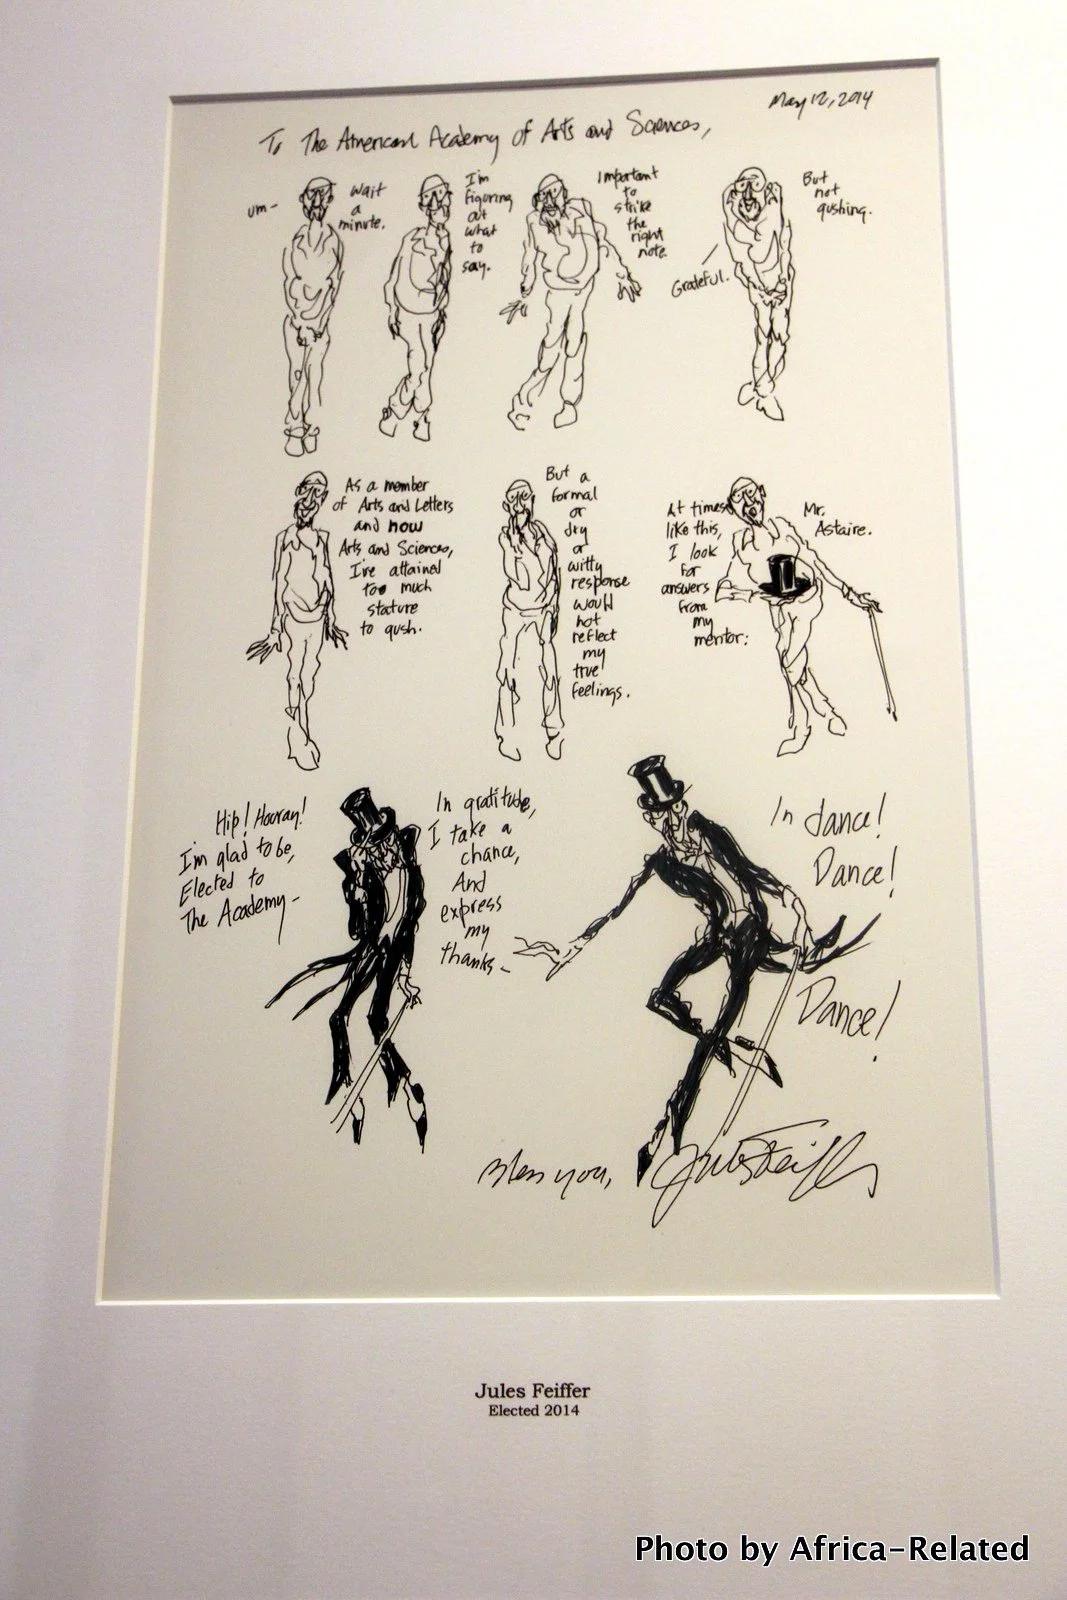 May 12, 2014
To The American Academy of Arts and Sciences,
um-
wait
a
minute.
I'm
figuring
out
what
to
say.
Important
to
strike
the
right
note.
Grateful.
But
not
gushing.
As a member
of Arts and Letters
and now
Arts and Sciences,
I've attained
too much
stature
to gush.
But a
formal
or
dry
or
witty
response
would
not
reflect
my
true
feelings.
At times
like this,
I look
for
answers
from
my
mentor:
Mr.
Astaire.
Hip! Hooray!
I'm glad to be,
Elected to
The Academy-
In gratitude,
I take a
chance,
And
express
my
thanks-
In dance!
Dance!
Dance!
Bless you,
Jules Feiffer
Jules Feiffer
Elected 2014
Photo by Africa-Related